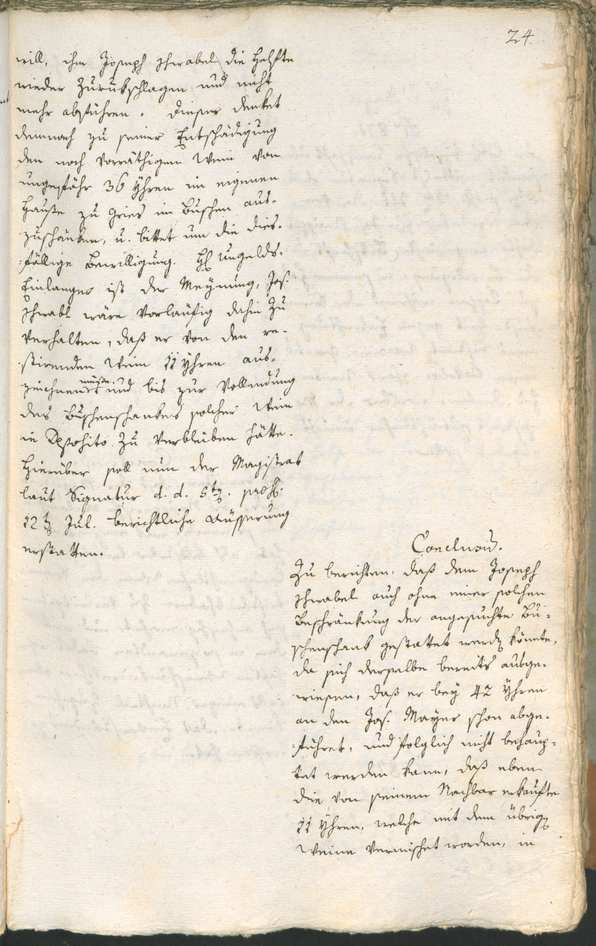 24.
will, ihm Joseph Schwabel die Helfte
wieder zurükschlagen und nicht
mehr abführen. Dieser denket
demnach zu seiner Entschädigung
den noch vorräthigen Wein von
ungefähr 36 Yhren im eigenen
Hause zu Gries in Buschen aus-
zuschänken, u. bittet um die dies-
fällige Bewilligung. H Ungelds-
Einlanger ist der Meynung, Jos.
Schwabl wäre vorläufig dahin zu
verhalten, daß er von den re-
stirenden Wein 11 Yhren aus-
zeichnen müsse und bis zur Vollendung
des Buschenschankes solcher Wein
in Deposito zu verbleiben hätte.
Hierüber soll nun der Magistrat
laut Signatur d. d. 5t prs:
12t Jul. berichtliche Äusserung
erstatten.
Conclusum.
Zu berichten, daß dem Joseph
Schwabel auch ohne einer solchen
Beschränkung der angesuchte Bu-
schenschank gestattet werden könnte,
da sich derselbe bereits ausge-
wiesen, daß er bey 42 Yhren
an den Jos. Mayer schon abge-
führet, und folglich nicht behaup-
tet werden kann, daß eben
die von seinem Nachbar erkaufte
11 Yhren, welche mit dem übrigen
Weine vermischet worden, in